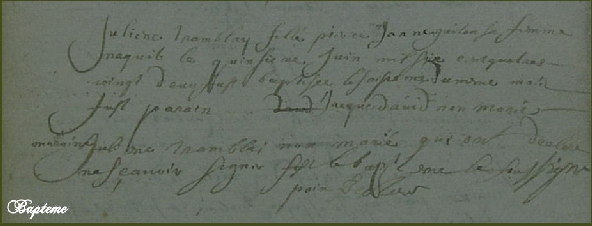 Juliene tramblay fille pierre Janne gaiton sa femme
naquit le quinsieme Juin mil six cens quatre
vingt deux fust baptisée le saise me du mme mois
fust parain Jacque david non marié
maraine Juliene tramblei non marié qui ont declare
ne sçavoir signer fist le bapt eme le soussigné
Bapteme